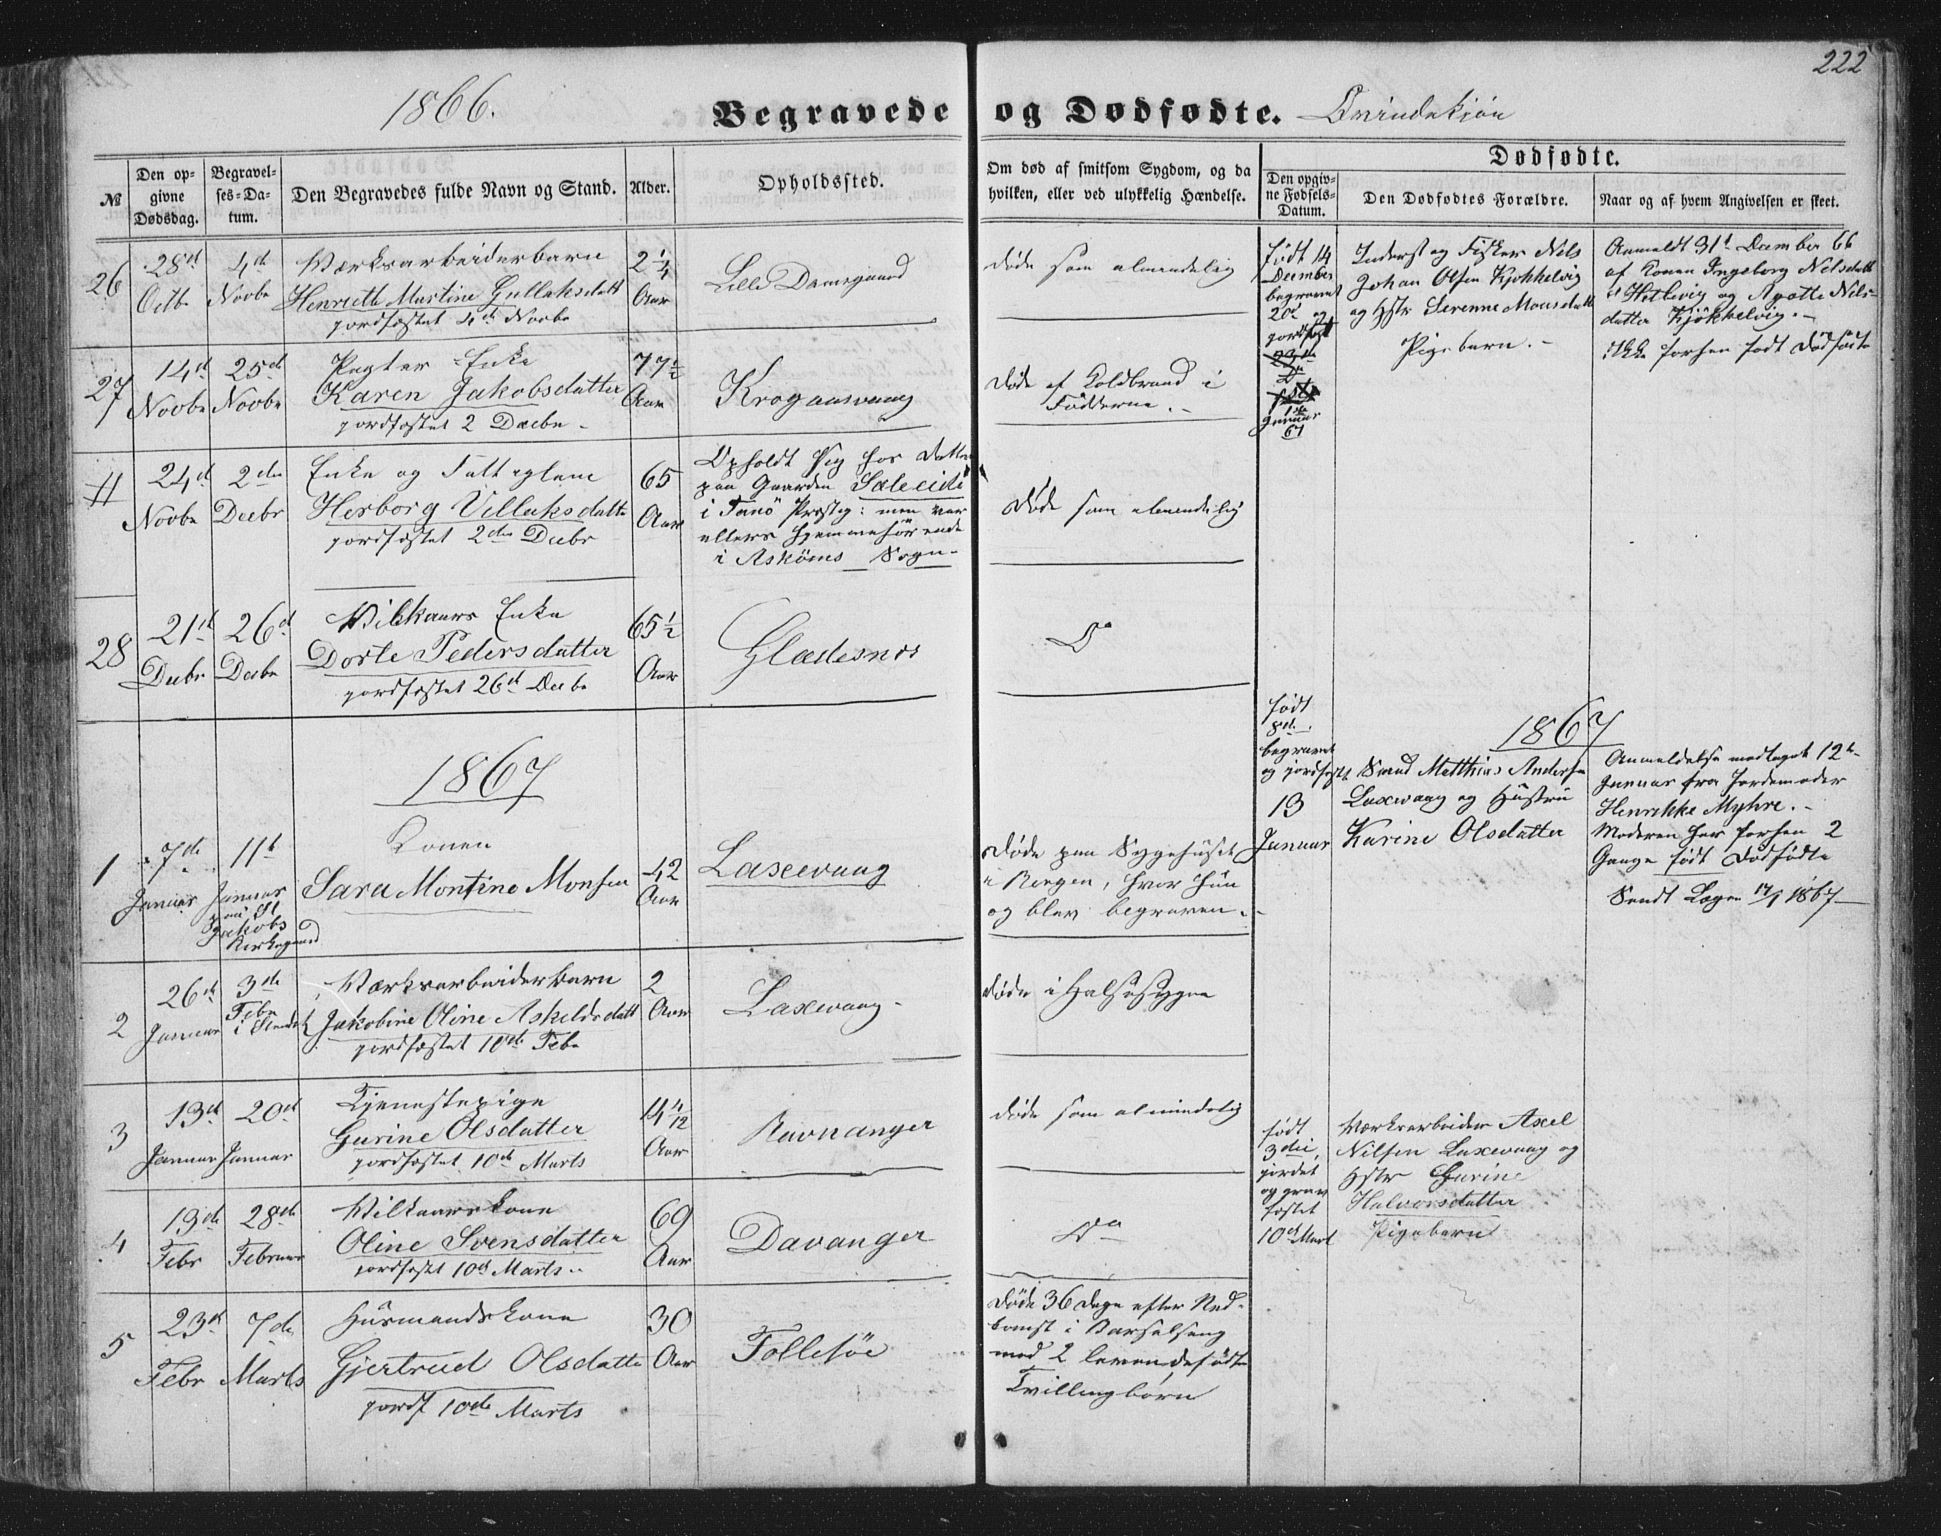 222
1866.
Begravede og Dødfødte. Qvindekjøn
№
Den op-
givne
Dødsdag.
Begravel-
ses-Da-
tum.
Den Begravedes fulde Navn og Stand.
Alder.
Opholdssted.
Om død af smitsom Sygdom, og da
hvilken, eller ved ulykkelig Hændelse.
Dødfødte.
Den opgiv-
ne Fødsels-
Datum.
Den Dødfødtes Forældre.
Naar og af hvem Angivelsen er skeet.
26
28de
Octbr
4de
Novbr
Værksarbeiderbarn
Henriette Martine Gullaksdatt
jordfæstet 4de Novbr
2 1/4
Aar
Lille Damsgaard
Døde som almindelig
født 14
December
begravet
20de og
jordfæst
1ste
Januar
67
Inderst og Fisker Nils
Johan Olsen Kjøkkelvig
og Hstr Serenne Monsdatt
Pigebarn.
Anmeldt 31te December 66
af Konen Ingeborg Nilsdatt
Hetlevig og Nielsdatter Kjøkkelvig.
ikke forhen født Dødfødte
27
14de
Novbr
25de
Novbr
Pagter Enke
Karen Jakobsdatter
jordfæstet 2 Decbr
77 1/2
Aar
Krogaasvaag
Døde af Koldbrand i
Fødderne.
24de
Novbr
2den
Decbr
Enke og Fattiglem
Herborg Villaksdatte
jordfæstet 2den Decbr
65
Aar
Opholdt sig hos Datter
paa Gaarden Saleeide
i Fanø Præstg: men var
ellers hjemmehørende
i Askøens Sogn
Døde som almindelig
28
21de
Decbr
26de
Decbr
Vilkaars Enke
Dorte Pedersdatter
jordfæstet 26de Decbr
65 1/2
Aar
Gladesnæs
Do
1867
1867
1
7de
Januar
11te
Januar
paa St
Jakobs
Kirkegaard
Konen
Sara Montine Monsen
42
Aar
Laxevaag
Døde paa Sygehuset
i Bergen, hvor hun
og blev begraven.
født
8de
begravet
og jordfæstet
13
Januar
Smed Matthias Andersen
Laxevaag og Hustru
Karine Olsdatter
Anmeldelse modtaget 12te
Januar fra Jordemoder
Henrikke Myhre.
Moderen har forhen 2
Gange født Dødfødte
Sendt Lægen 17/1 1867
2
26de
Januar
3de
Febr
Værksarbeiderbarn
Jakobine Oline Askeldsdatt
jordfæstet 10de Febr
2
Aar
Laxevaag
Døde i Halssyge
3
13de
Januar
20de
Januar
Tjenestepige
Gurine Olsdatter
jordfæstet 10de Marts
14 4/12
Aar
Ravnanger
Døde som almindelig
født
3die,
jordet
og grav
fæstet
10de Mart
Værksarbeider Axel
Nilsen Laxevaag og
Hstr Gurine
Halvorsdatter
Pigebarn
4
19de
Febr
28de
Februar
Vilkaarskone
Oline Svensdatter
jordfæst 10de Marts
69
Aar
Davanger
Do
5
23de
Febr
7de
Marts
Husmandskone
Gjertrud Olsdatte
jordf 10de Marts
30
Aar
Follesøe
Døde 36 Dage efter Ned-
komst i Barselseng
med 2 levendefødte
Tvillingbørn